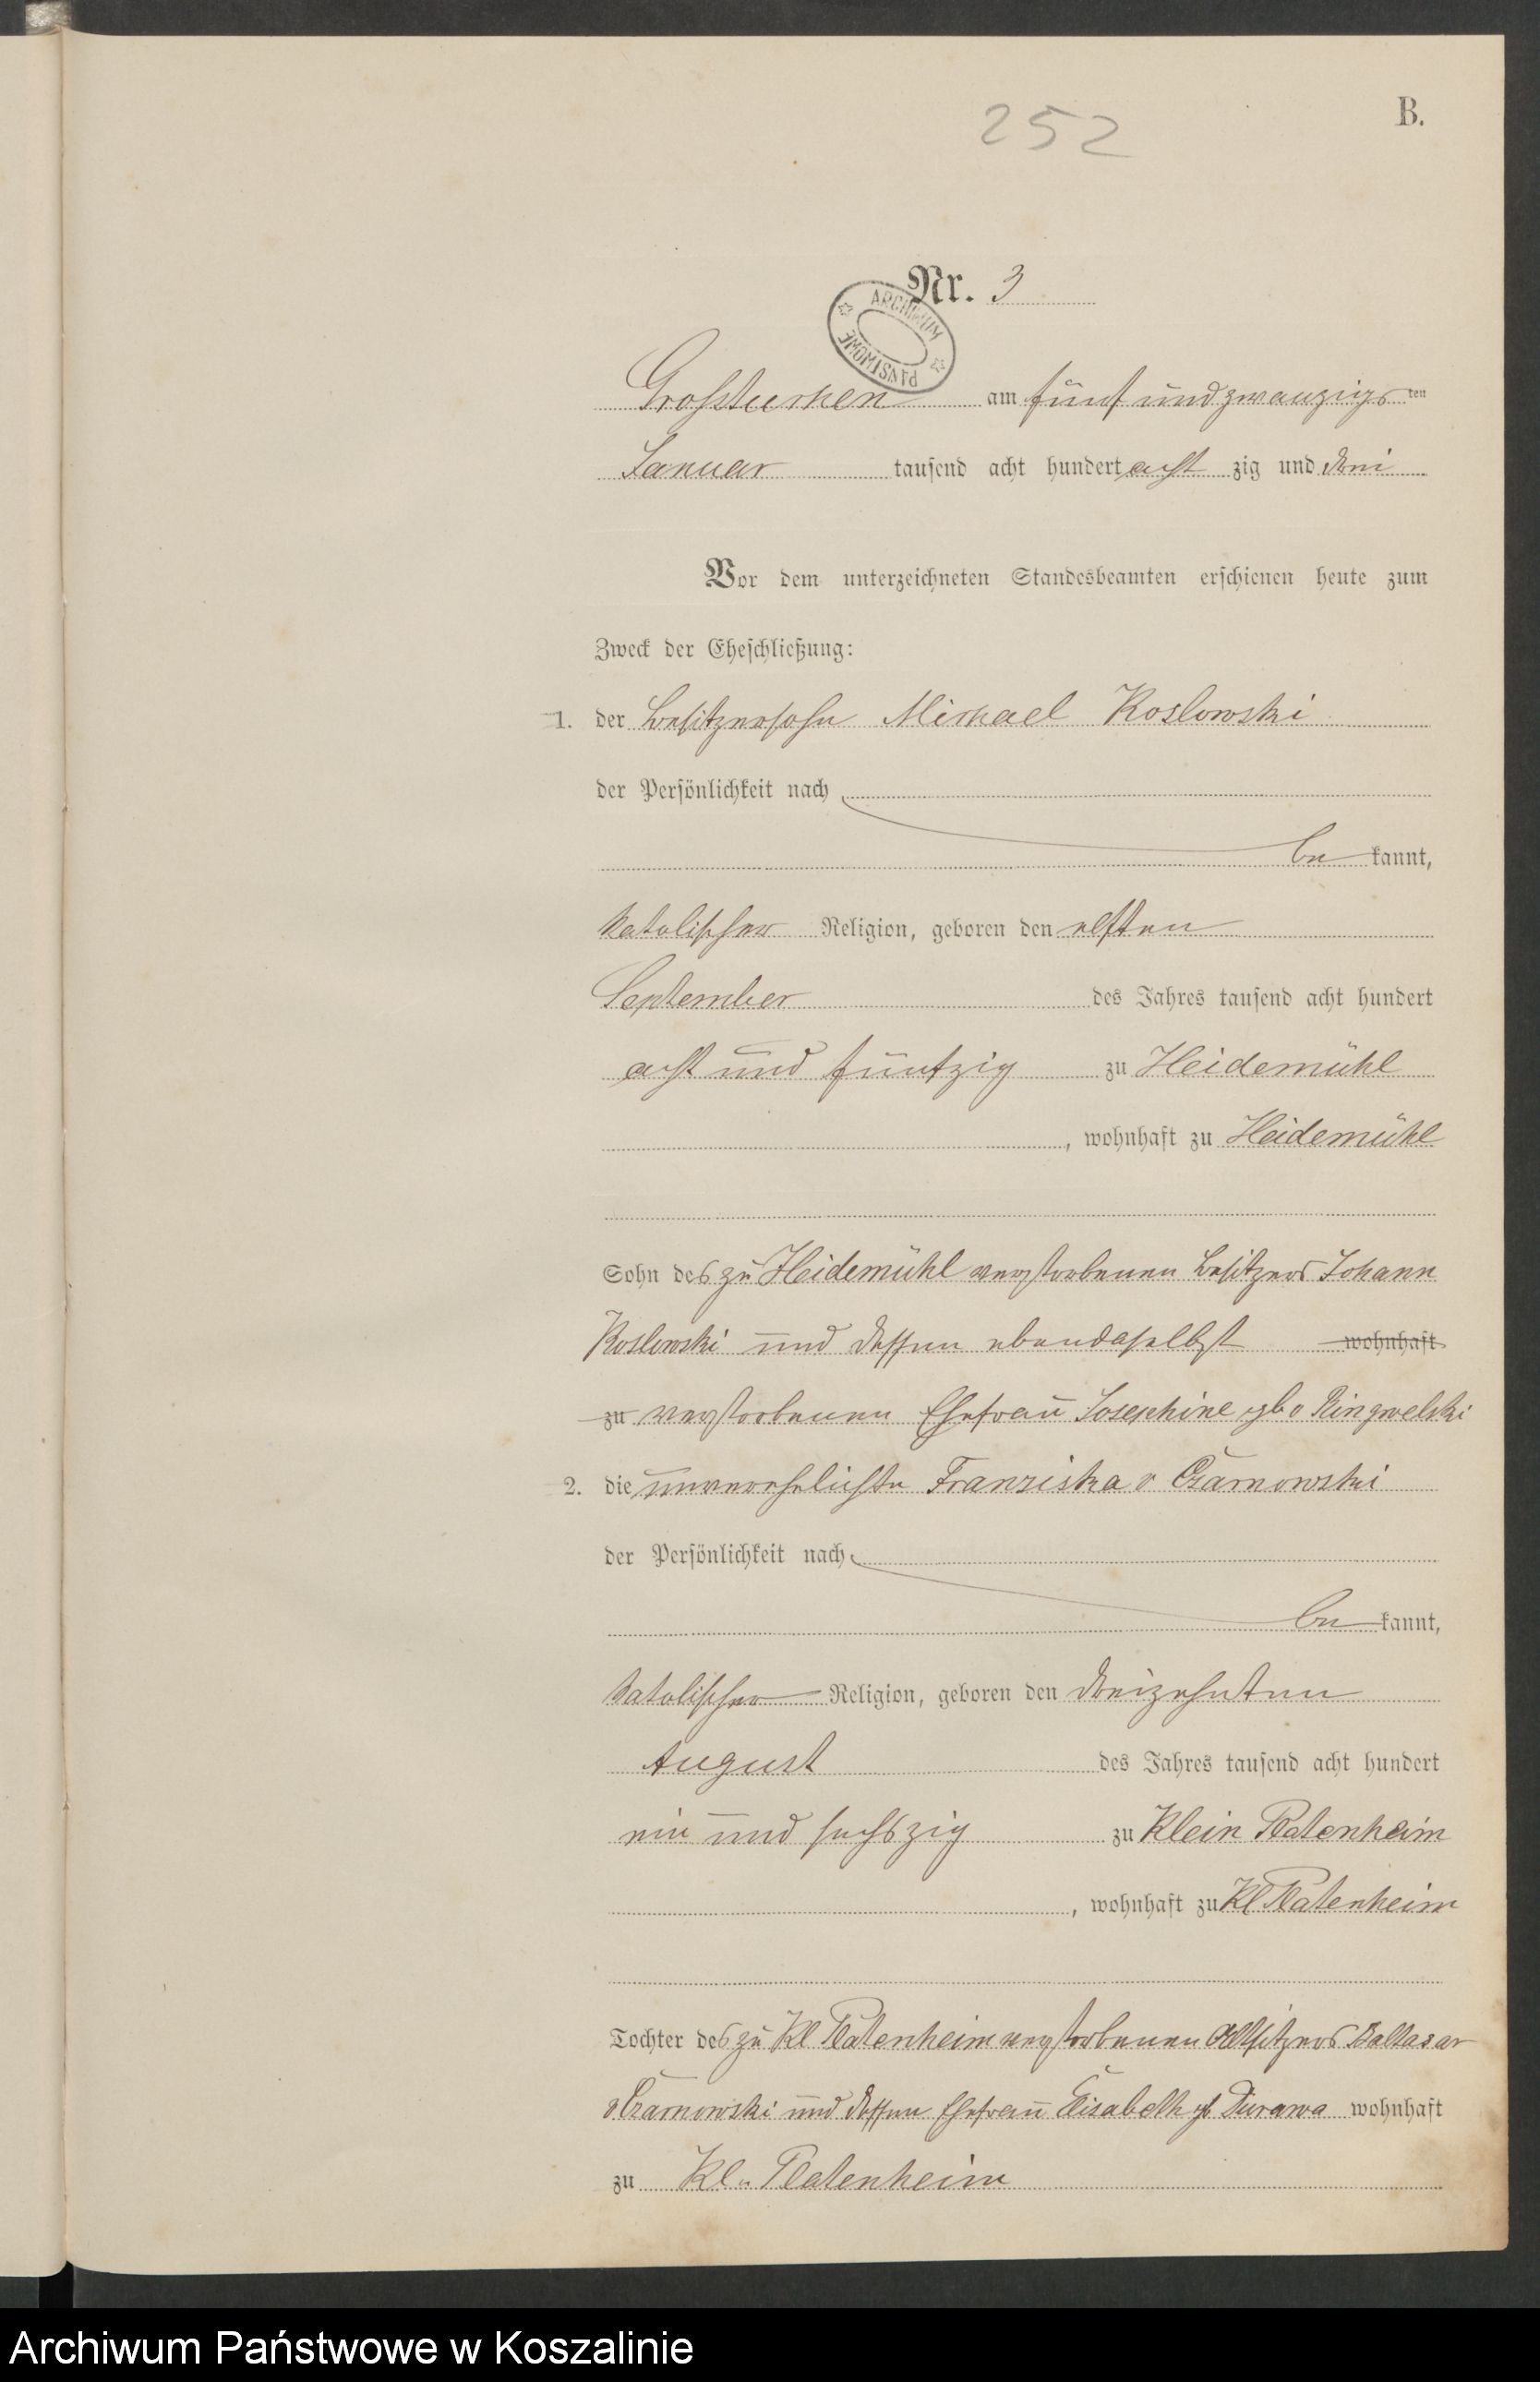 252
B.
Nr. 3
ARCHIWUM PAŃSTWOWE
Grosstuchen am fünf und zwanzigsten
Januar tausend acht hundert acht zig und drei
Vor dem unterzeichneten Standesbeamten erschienen heute zum
Zweck der Eheschließung:
1. der Besitzersohn Michael Koslowski
der Persönlichkeit nach
be kannt,
katolischer Religion, geboren den elften
September des Jahres tausend acht hundert
acht und fünfzig zu Heidemühl
, wohnhaft zu Heidemühl
Sohn des zu Heidemühl verstorbenen Besitzers Johann
Koslowski und dessen ebendaselbst wohnhaft
zu verstorbenen Ehefrau Josephine gb v Ringwelski
2. die unverehelichte Franziska v Czarnowski
der Persönlichkeit nach
be kannt,
katolischer Religion, geboren den dreizehnten
August des Jahres tausend acht hundert
ein und sechszig zu Klein Platenheim
, wohnhaft zu Kl Platenheim
Tochter des zu Kl Platenheim verstorbenen Altsitzers Baltasar
v. Czarnowski und dessen Ehefrau Elisabeth gb Durawa wohnhaft
zu Kl. Platenheim
Archiwum Państwowe w Koszalinie